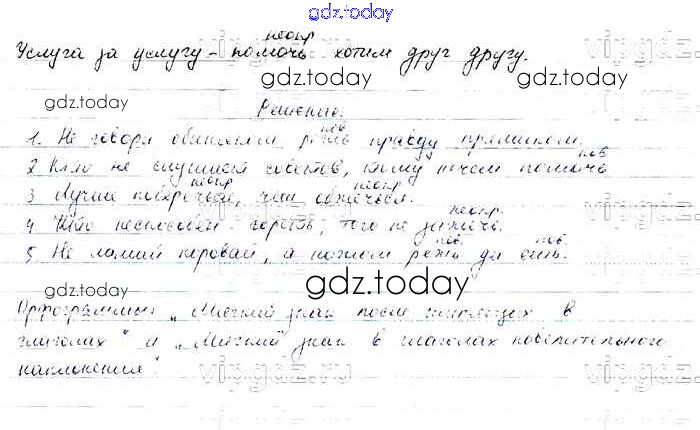 gdz.today
неопр
Услуга за услугу - помочь хотим друг другу.
gdz.today
Решение.
пов
1. Не говори обиняками, режь правду прямиком.
пов
2 Кто не слушает советов, тому нечем помочь
неопр неопр
3 Лучше поберечься, чем обжечься.
неопр
4 Кто неспособен гореть, того не зажечь.
пов пов
5. Не ломай коровай, а ножом режь да ешь.
Орфограммы „Мягкий знак после шипящих в
глаголах" и „Мягкий знак в глаголах повелительного
наклонения"